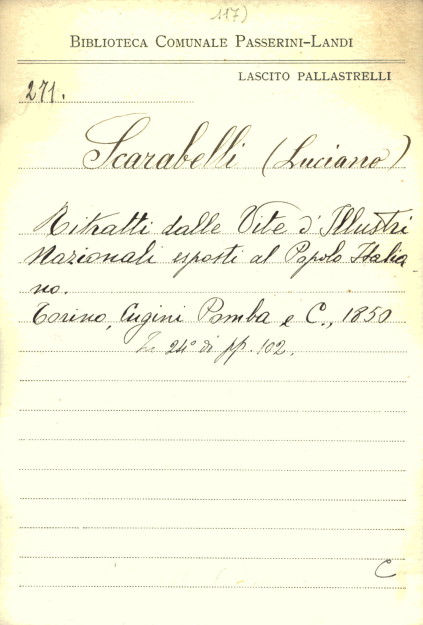 117)
BIBLIOTECA COMUNALE PASSERINI-LANDI
LASCITO PALLASTRELLI
271.
Scarabelli (Luciano)
Ritratti dalle Vite d'Illustri
Nazionali esposti al Popolo Italia
no.
Torino, Cugini Pomba e C., 1850
In 24° di pp. 102.
C